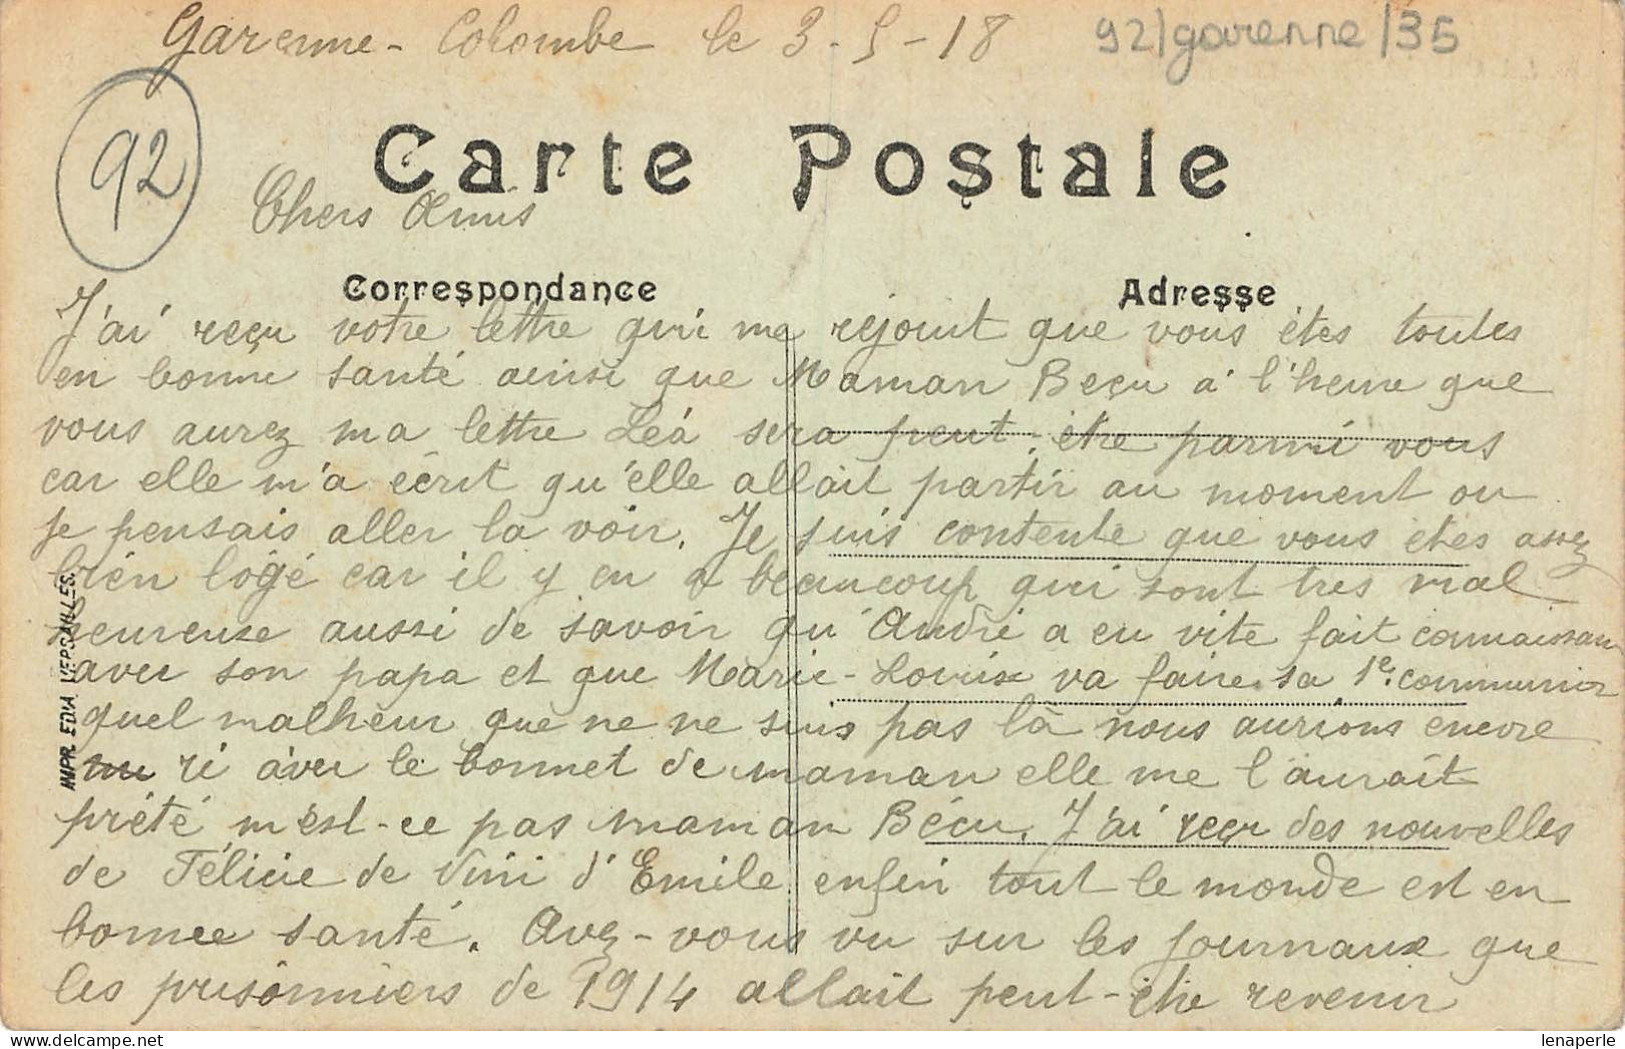 Garenne-Colombe le 3-5-18
92/garenne/35
92
Carte Postale
Chers Amis
Correspondance
Adresse
J'ai reçu votre lettre qui me rejouit que vous êtes toutes
en bonne santé ainsi que Maman Beçu a l'heure que
vous aurez ma lettre Léa sera peut-être parmi vous
car elle m'a écrit qu'elle allait partir au moment ou
je pensais aller la voir. Je suis contente que vous etes assez
bien logé car il y en a beaucoup qui sont tres mal
heureuse aussi de savoir qu'André a eu vite fait connaissan
avec son papa et que Marie-Louise va faire sa 1e communion
quel malheur que ne ne suis pas là nous aurions encore
ri avec le bonnet de maman elle me l'aurait
prété n'est-ce pas maman Bécu. J'ai reçu des nouvelles
de Félicie de Nini d'Emile enfin tout le monde est en
bonnee santé. Avez-vous vu sur les journaux que
les prisonniers de 1914 allait peut-être revenir
IMPR. EDIA VERSAILLES.
lenaperle